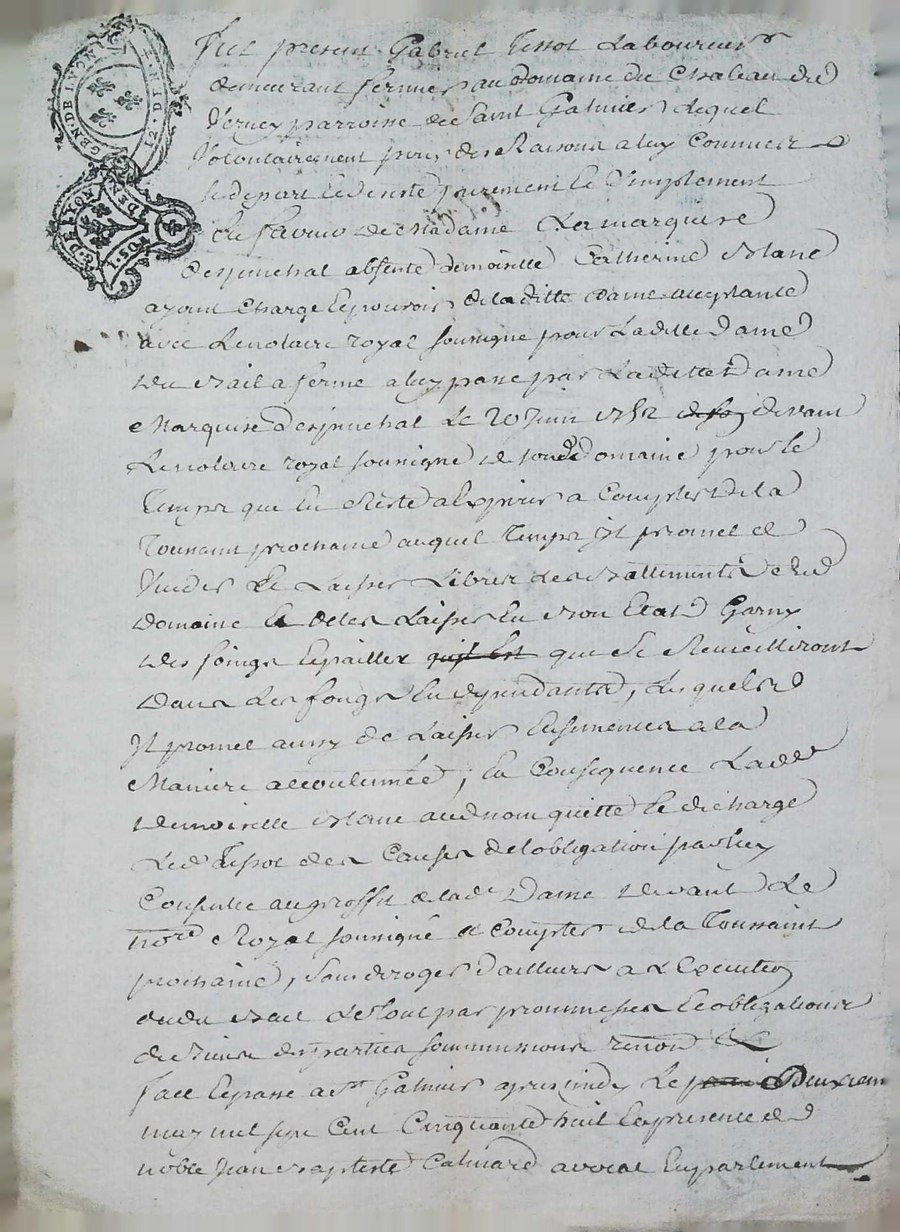 GEN. DE LYON
12. DEN. P.
G. DE LYON
DEN
Fut present Gabriel Tissot Laboureur
demeurant fermier au domaine du Chateau du
Verney parroisse de Saint Galmier Lequel
Volontairement pour des Raisons a luy Connues
se depart et desiste purement et simplement
En faveur de Madame La marquise
Despinchal absente demoiselle Catherine Blanc
ayant Charge et pouvoir de laditte dame acceptante
avec Le notaire royal soussigné pour Laditte Dame
du Bail a ferme a luy passé par Laditte Dame
Marquise Despinchal Le 20 Juin 1752 devant
Le notaire royal soussigné de sondt Domaine pour le
Temps que En Reste a Expirer a Compter de la
Toussaint prochaine auquel Temps il promet de
Vuider et Laisser Libres les Battiments dud
Domaine et de les Laisser En Bon Etat Garny
des foings et pailles qui se Recueilliront
dans Les fonds En dependants, Lesquels
Il promet aussy de Laisser Ensemencés a la
Maniere accoutumée ; En Consequence Lade
Demoiselle Blanc aud nom quitte et decharge
Led Tissot des Causes de l'obligation par luy
Consentie au proffit de lade Dame devant Le
nore Royal soussigné a Compter de la Toussaint
prochaine, sans deroger d'ailleurs a L'Execution
dudu Bail Le Tout par promesses et obligations
de Biens des parties soummissions renon &c
fait et passé a St Galmier apres midy Le Deuxiem
may mil sept Cent Cinquante huit En presence de
noble Jean Baptiste Calmard avocat En parlement